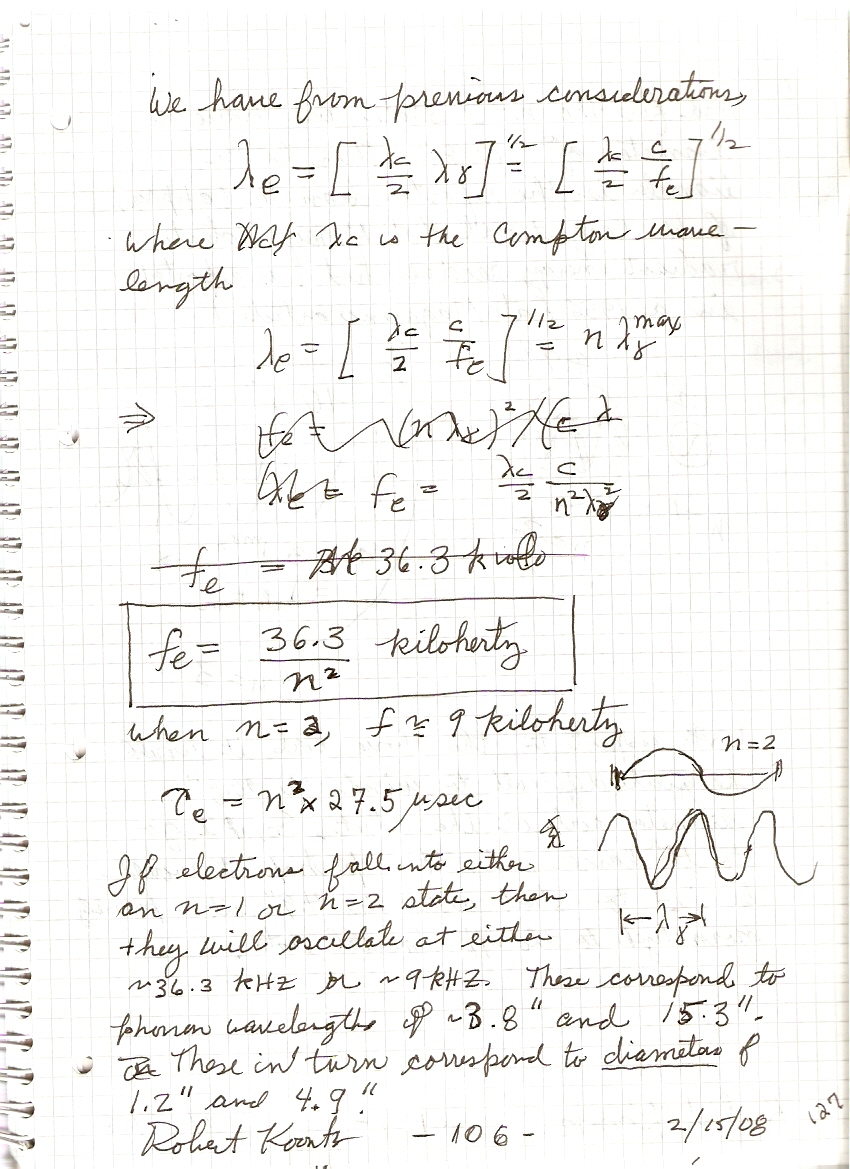 We have from previous considerations,
λe = [ λc/2 λγ ]^1/2 = [ λc/2 c/fe ]^1/2
where λc is the Compton wave-
length
λe = [ λc/2 c/fe ]^1/2 = n λγ^max
⇒ fe = (nλγ)²/(c λ
fe = λc/2 c/n²λγ²
fe = 36.3 k
fe = 36.3/n² kilohertz
when n=2, f ≈ 9 kilohertz
n=2
τe = n² x 27.5 μsec
If electrons fall into either
an n=1 or n=2 state, then
they will oscillate at either
|← λγ →|
~36.3 kHz or ~9kHz. These correspond to
phonon wavelengths of ~3.8" and 15.3".
These in turn correspond to diameters of
1.2" and 4.9".
Robert Koontz - 106 - 2/15/08 127